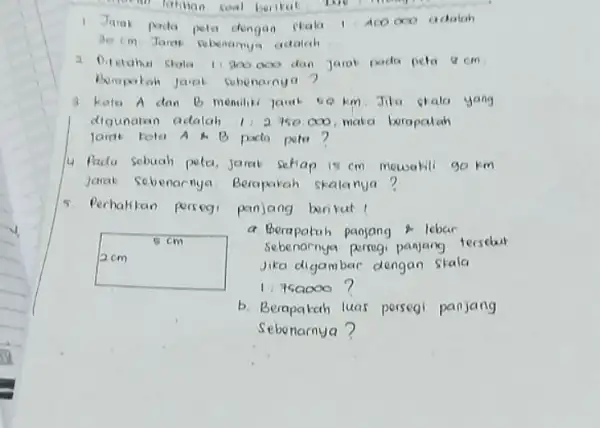 latihan soal berikut
1 Jarak pada peta dengan skala 1 : 400 000 adalah
30 cm Jarak sebenarnya adalah
2. Diketahui skala 1 : 900 000 dan jarak pada peta 8 cm.
Berapakah jarak sebenarnya ?
3 kota A dan B memiliki jarak 60 km. Jika skala yang
digunakan adalah 1 : 2.750.000, maka berapakah
jarak kota A & B pada peta ?
4 Pada sebuah peta, jarak setiap 15 cm mewakili 90 km
jarak sebenarnya. Berapakah skalanya ?
5. Perhatikan persegi panjang berikut !
a Berapakah panjang & lebar
sebenarnya persegi panjang tersebut
jika digambar dengan skala
1 : 750000 ?
8 cm
2 cm
b. Berapakah luas persegi panjang
sebenarnya ?